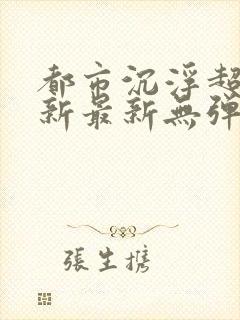 都市沉浮超
新最新無弹
張生携